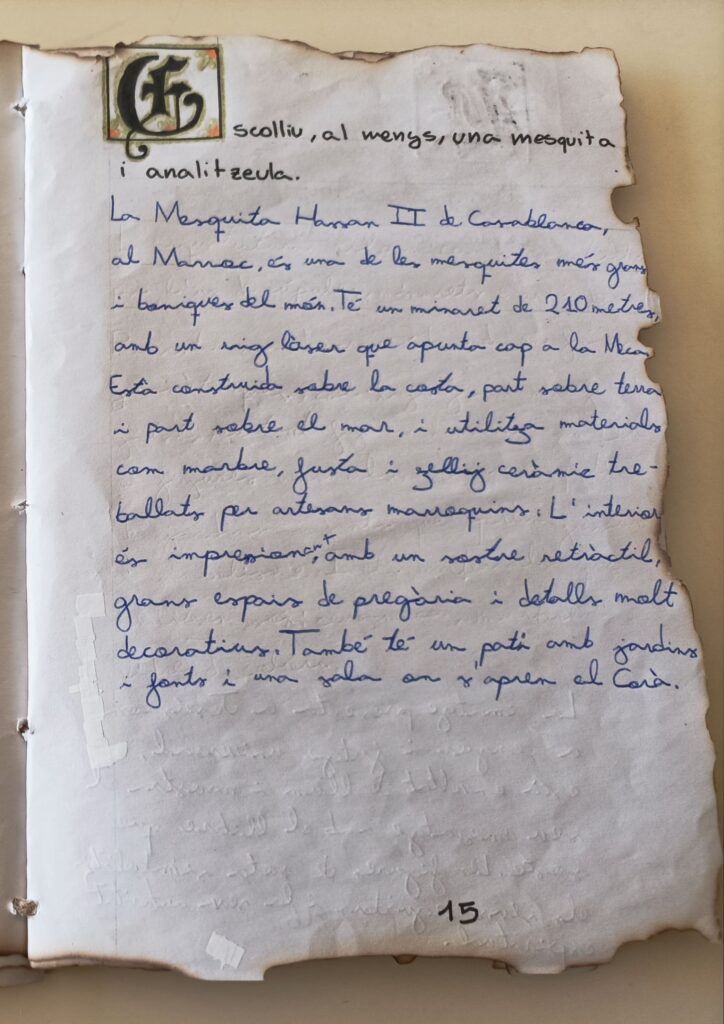 Escolliu, al menys, una mesquita
i analitzeula.
La Mesquita Hassan II de Casablanca,
al Marroc, és una de les mesquites més grans
i boniques del món. Té un minaret de 210 metres,
amb un raig làser que apunta cap a la Meca.
Està construida sobre la costa, part sobre terra
i part sobre el mar, i utilitza materials
com marbre, fusta i zellij ceràmic tre-
ballats per artesans marroquins. L'interior
és impresionant, amb un sostre retràctil,
grans espais de pregària i detalls molt
decoratius. També té un pati amb jardins
i fonts i una sala on s'apren el Corà.
15